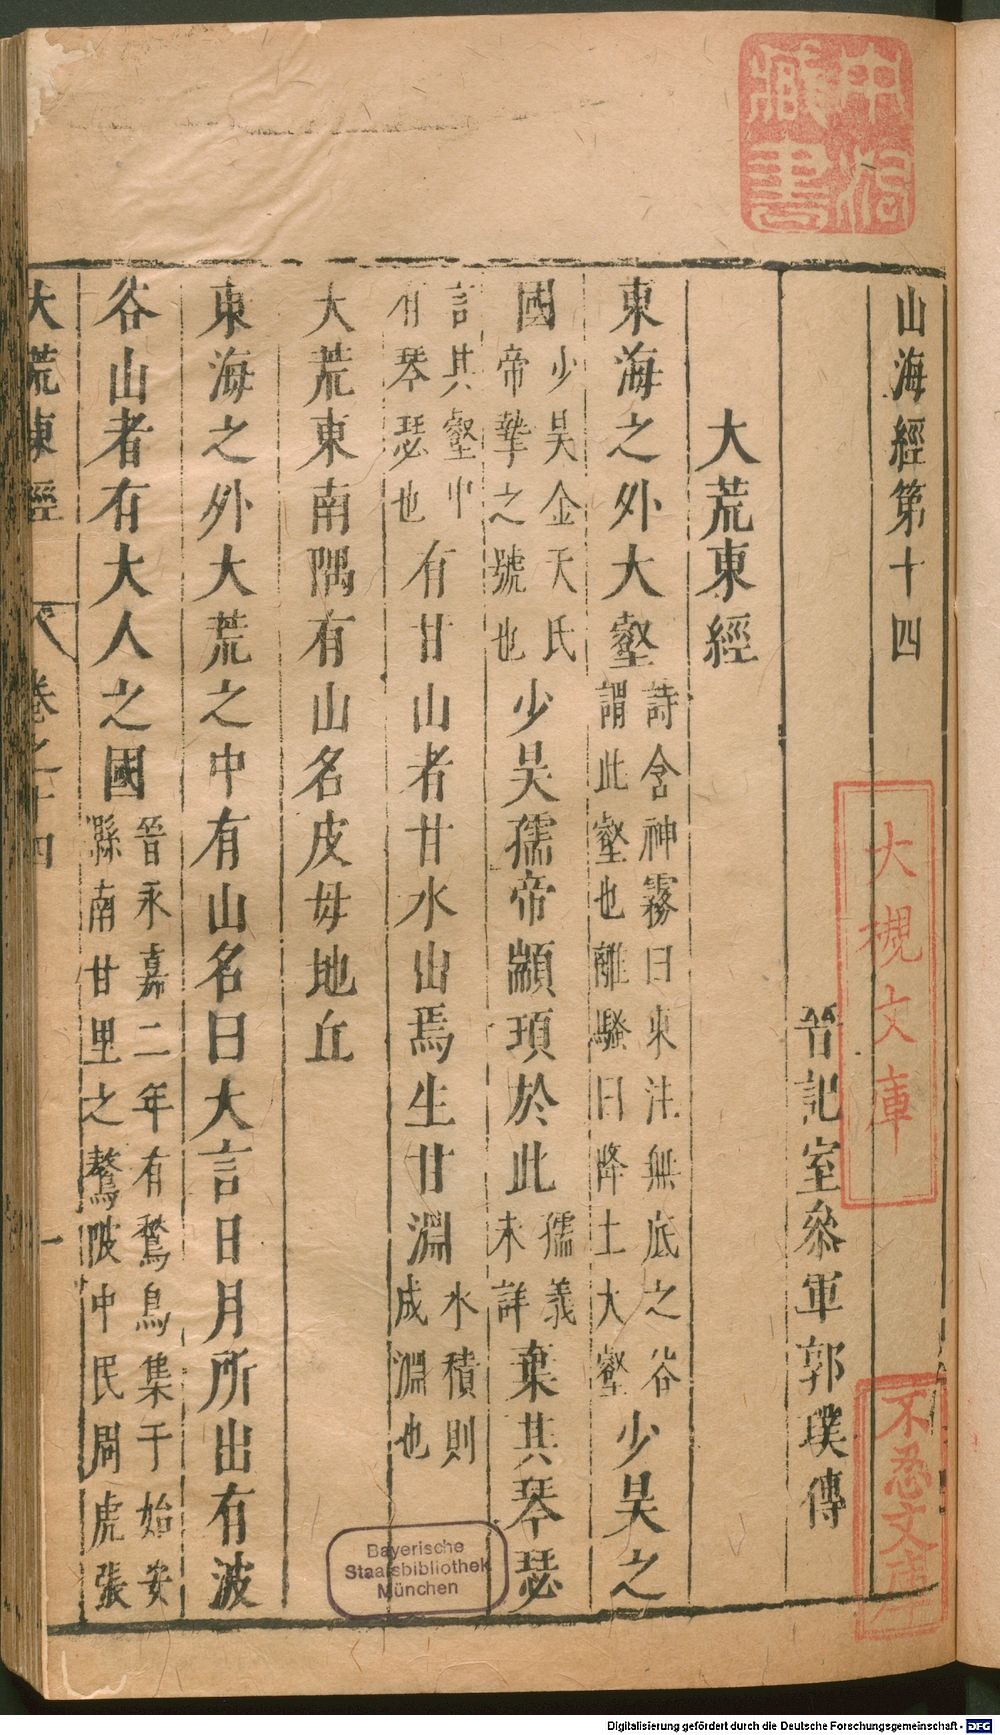 山海經第十四
晉記室參軍郭璞傳
大荒東經
東海之外大壑詩含神霧曰東注無底之谷謂此壑也離騷曰降土大壑少昊之
國少昊金天氏帝摯之號也少昊孺帝顓頊於此孺義未詳棄其琴瑟
言其壑中有琴瑟也有甘山者甘水出焉生甘淵水積則成淵也
大荒東南隅有山名皮母地丘
東海之外大荒之中有山名曰大言日月所出有波
谷山者有大人之國晉永嘉二年有鶖鳥集于始安縣南廿里之鶩陂中民周虎張
大荒東經 卷之十四 一
藏書
大槻文庫
不忍文庫
Bayerische
Staatsbibliothek
München
Digitalisierung gefördert durch die Deutsche Forschungsgemeinschaft - DFG